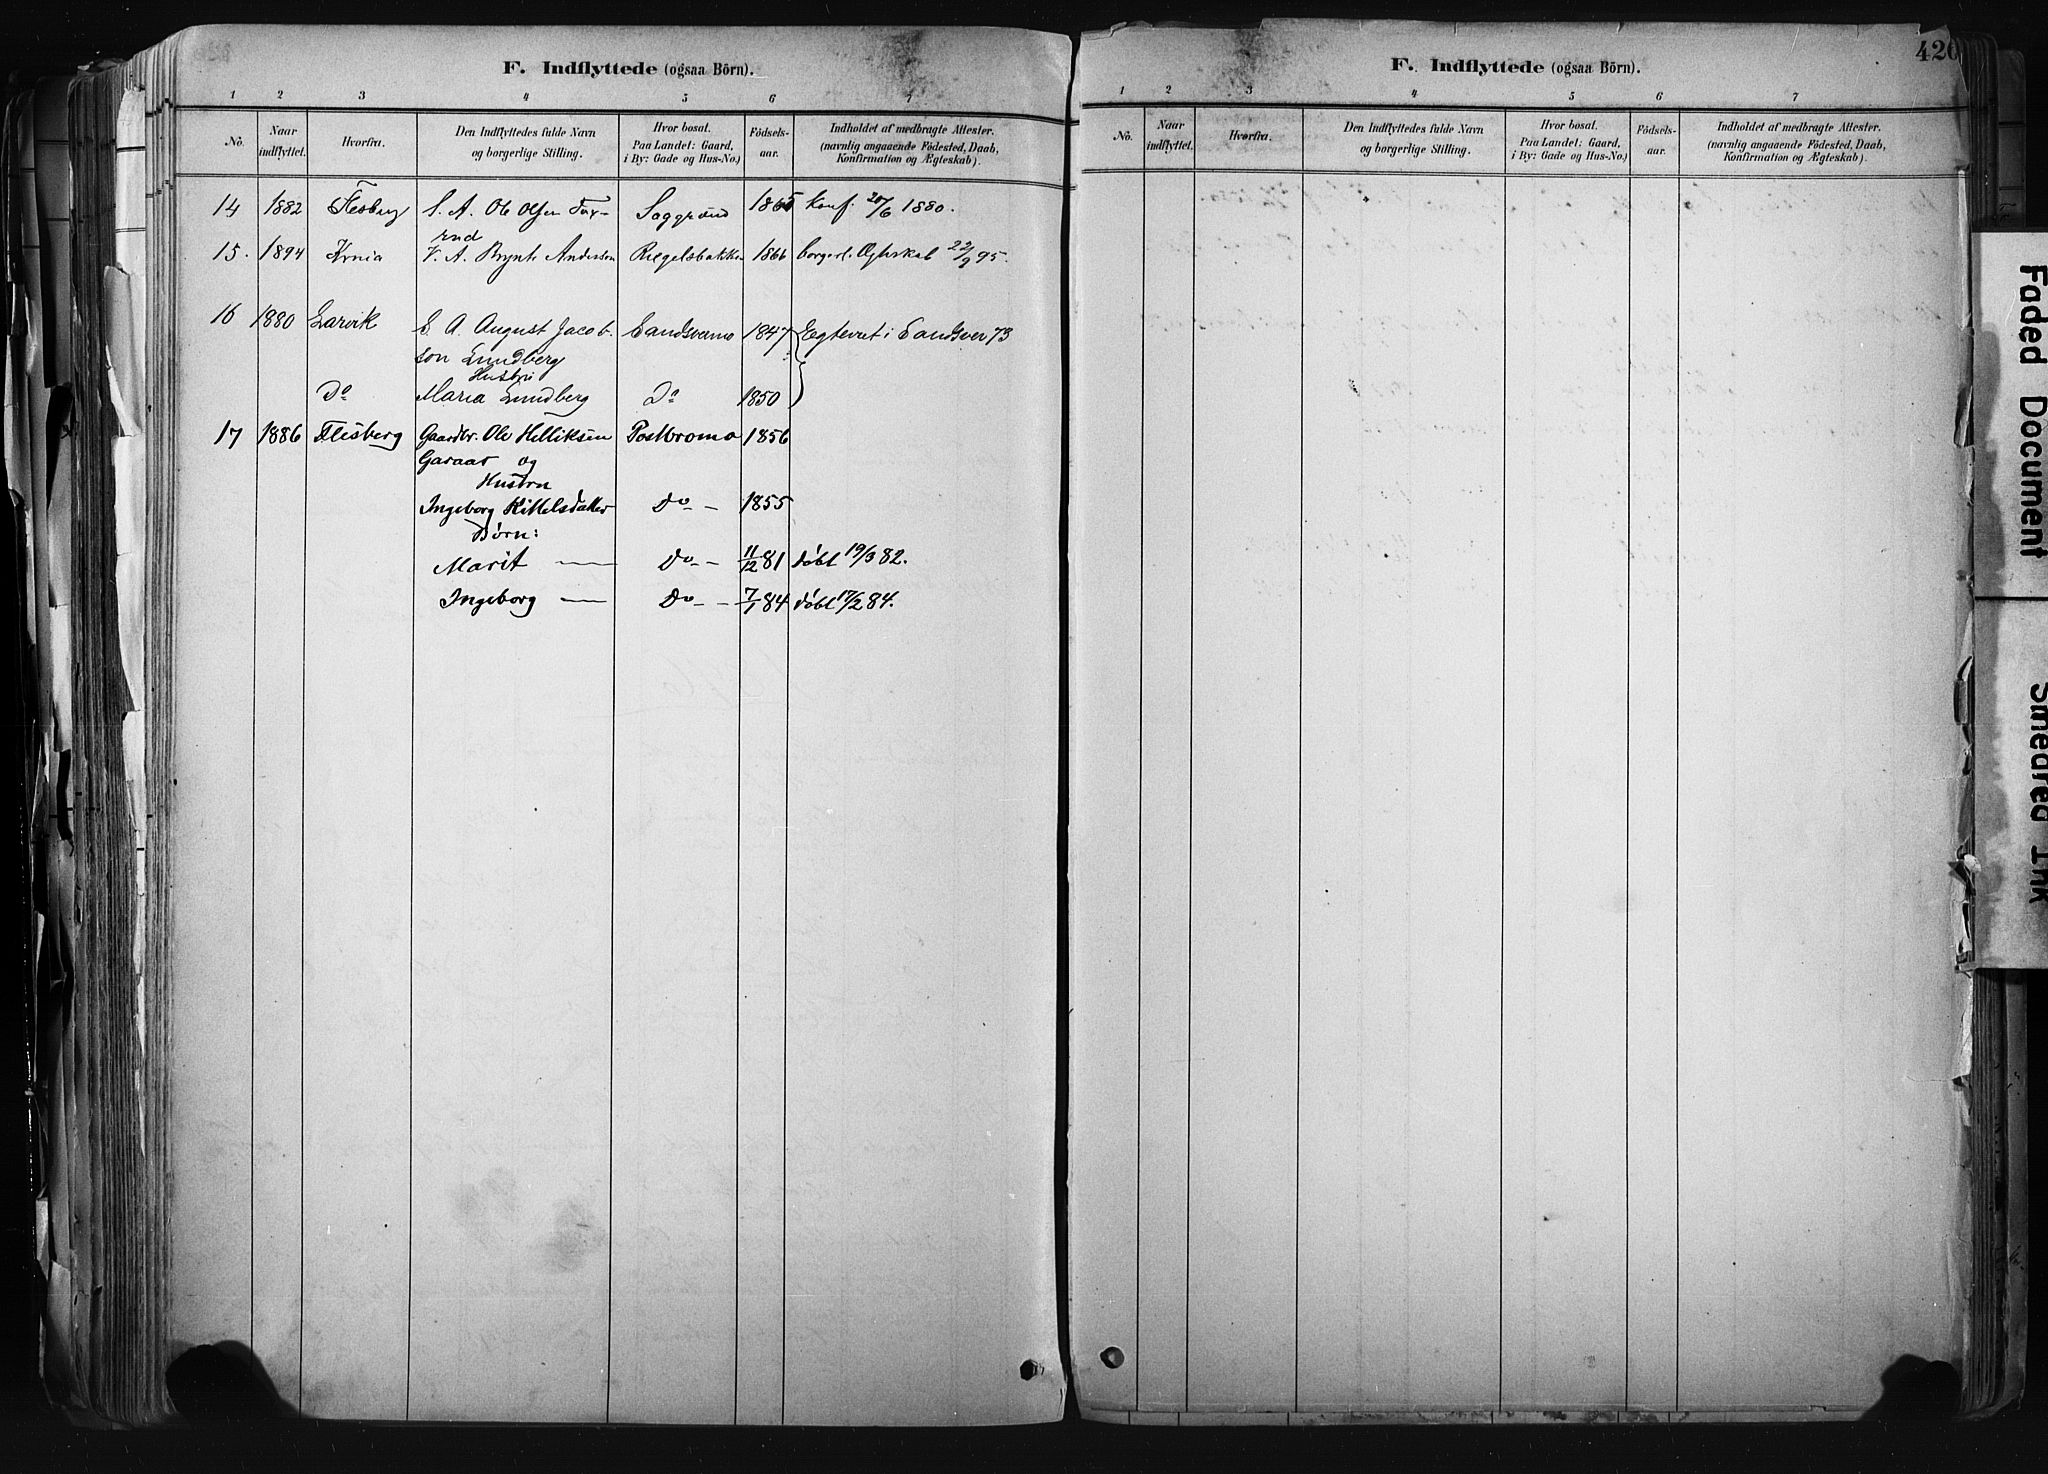 F. Indflyttede (ogsaa Börn).
1 2 3 4 5 6 7
No. Naar indflyttet. Hvorfra. Den Indflyttedes fulde Navn og borgerlige Stilling. Hvor bosat. Paa Landet: Gaard, i By: Gade og Hus-No.) Födsels-aar. Indholdet af medbragte Attester. (navnlig angaaende Födested, Daab, Konfirmation og Ægteskab).
14 1882 Flesberg S. A. Ole Olsen Fur- Saggrønd 1865 Konf. 20/6 1880.
rud
15. 1894 Krnia V. A. Brynte Andersen Riegelsbakken 1866 borgerl. Ægteskab 22/9 95.
16 1880 Larvik S. A. August Jacob- Sandsværmo 1847 Egteviet i Sandsver 73
son Lundberg
Hustru
Do Maria Lundberg Do 1850
17 1886 Flesberg Gaardbr. Ole Helliksen Postbromo 1856
Garaas og
Hustru
Ingeborg Kittelsdatter Do - 1855
Børn:
Marit — Do - 11/12 81 døbt 19/3 82.
Ingeborg — Do - 7/1 84 døbt 17/2 84.
F. Indflyttede (ogsaa Börn).
420
1 2 3 4 5 6 7
No. Naar indflyttet. Hvorfra. Den Indflyttedes fulde Navn og borgerlige Stilling. Hvor bosat. Paa Landet: Gaard, i By: Gade og Hus-No.) Födsels-aar. Indholdet af medbragte Attester. (navnlig angaaende Födested, Daab, Konfirmation og Ægteskab).
Faded Document
Smeared Ink